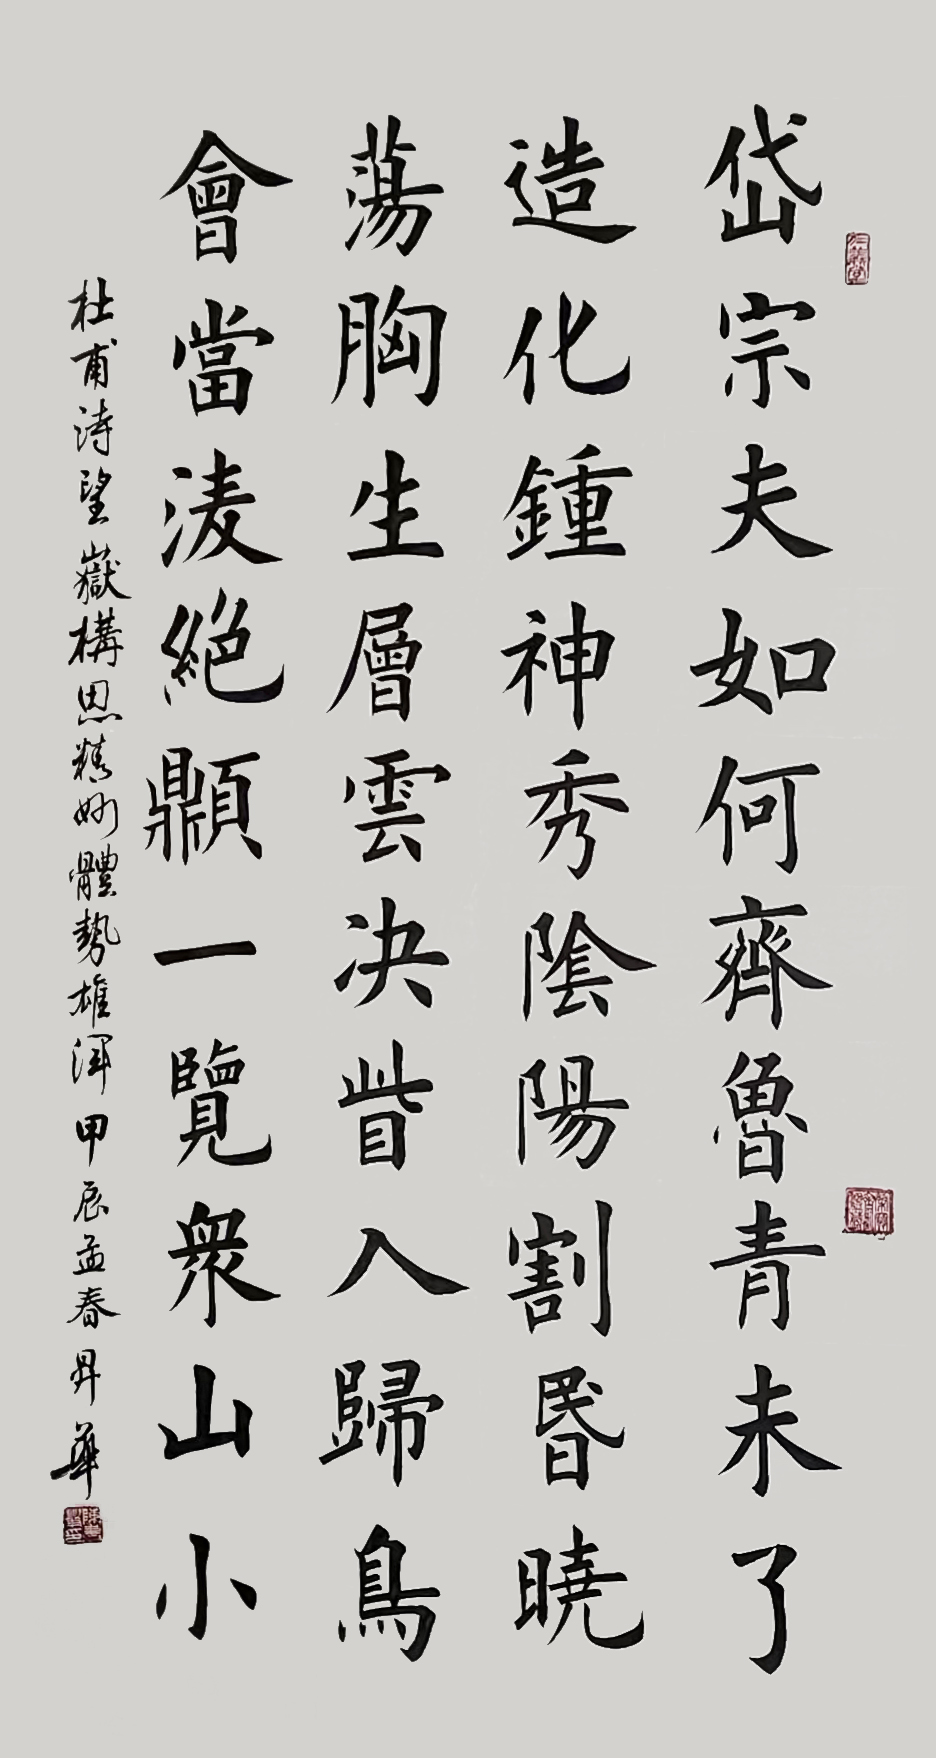 岱宗夫如何齊魯青未了
造化鍾神秀陰陽割昬曉
蕩胸生層雲决眥入歸鳥
會當淩絕顛一覽衆山小
杜甫詩望嶽構思精妙體勢雄渾甲辰孟春昇華